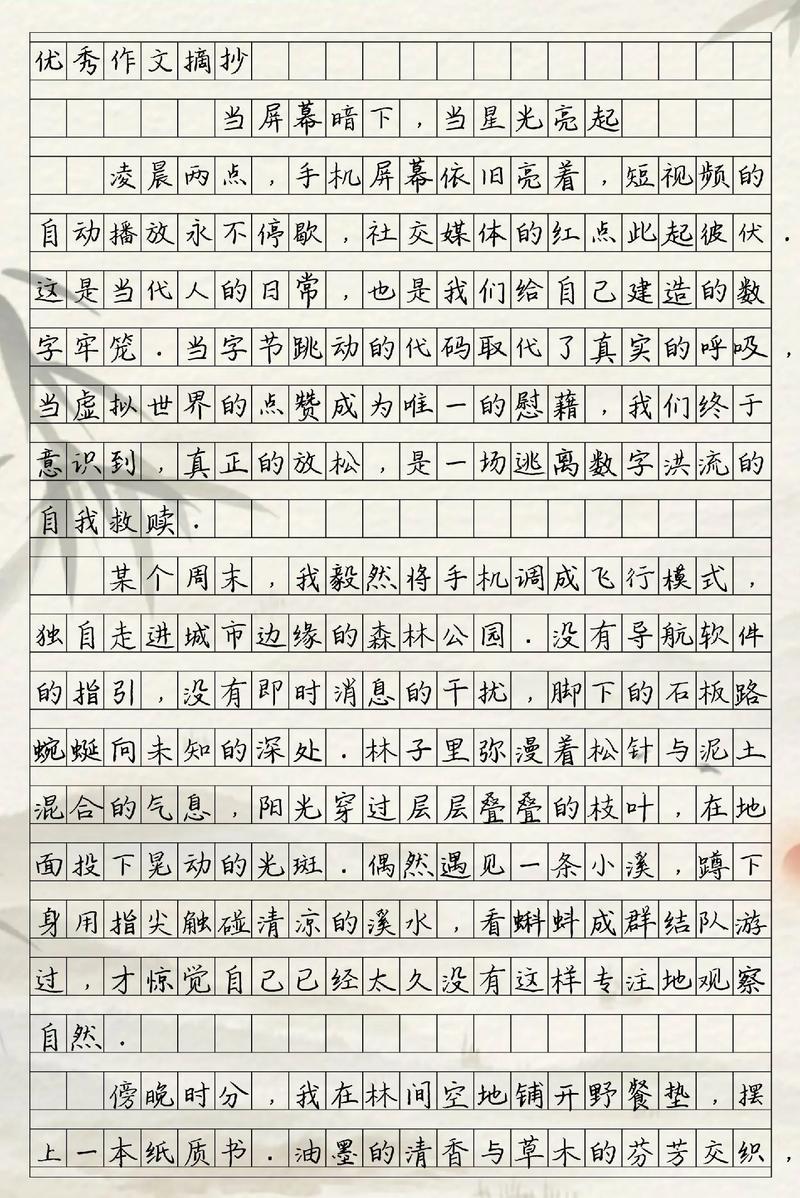 优秀作文摘抄
当屏幕暗下，当星光亮起
凌晨两点，手机屏幕依旧亮着，短视频的
自动播放永不停歇，社交媒体的红点此起彼伏．
这是当代人的日常，也是我们给自己建造的数
字牢笼．当字节跳动的代码取代了真实的呼吸，
当虚拟世界的点赞成为唯一的慰藉，我们终于
意识到，真正的放松，是一场逃离数字洪流的
自我救赎．
某个周末，我毅然将手机调成飞行模式，
独自走进城市边缘的森林公园．没有导航软件
的指引，没有即时消息的干扰，脚下的石板路
蜿蜒向未知的深处．林子里弥漫着松针与泥土
混合的气息，阳光穿过层层叠叠的枝叶，在地
面投下晃动的光斑．偶然遇见一条小溪，蹲下
身用指尖触碰清凉的溪水，看蝌蚪成群结队游
过，才惊觉自己已经太久没有这样专注地观察
自然．
傍晚时分，我在林间空地铺开野餐垫，摆
上一本纸质书．油墨的清香与草木的芬芳交织，